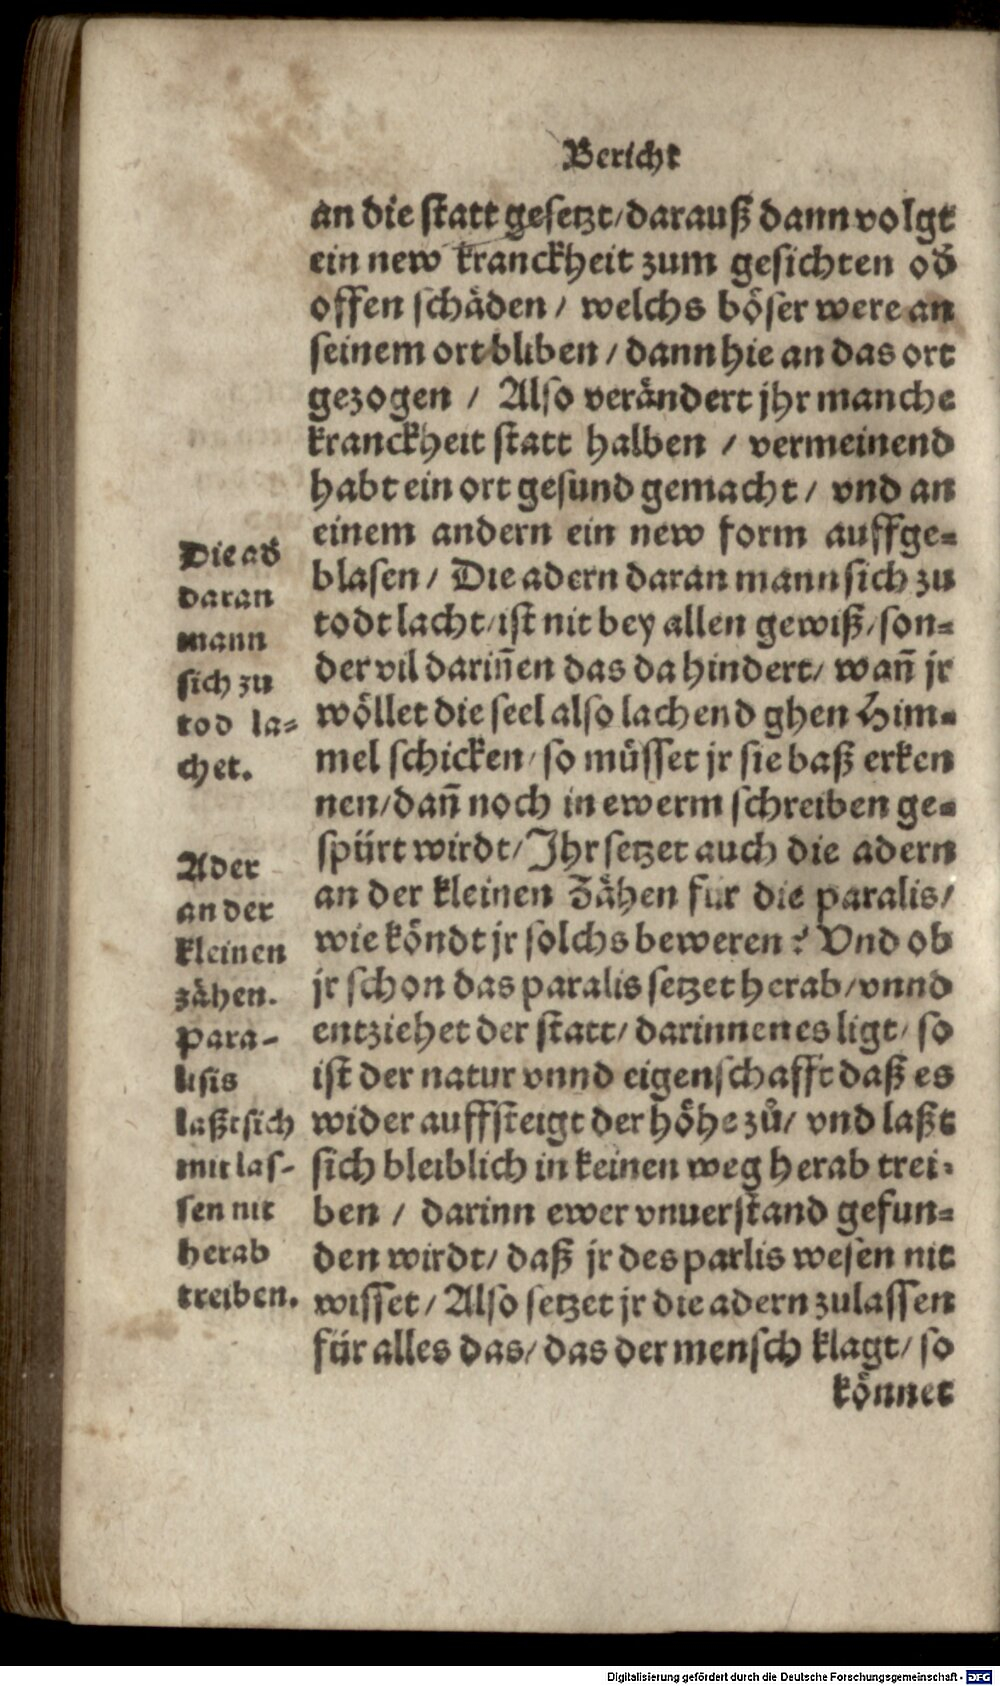 Bericht
an die statt gesetzt/ darauß dann volgt
ein new kranckheit zum gesichten od̕
offen schäden / welchs böser were an
seinem ort bliben / dann hie an das ort
gezogen / Also verändert jhr manche
kranckheit statt halben / vermeinend
habt ein ort gesund gemacht / vnd an
einem andern ein new form auffge=
blasen / Die adern daran mann sich zu
todt lacht/ ist nit bey allen gewiß/ son=
der vil dariñen das da hindert/ wañ jr
wöllet die seel also lachend ghen Him=
mel schicken/ so müsset jr sie baß erken
nen/ dañ noch in ewerm schreiben ge=
spürt wirdt/ Jhr setzet auch die adern
an der kleinen Zähen für die paralis/
wie köndt jr solchs beweren? Vnd ob
jr schon das paralis setzet herab/ vnnd
entziehet der statt/ darinnen es ligt/ so
ist der natur vnnd eigenschafft daß es
wider auffsteigt der höhe zů/ vnd laßt
sich bleiblich in keinen weg herab trei=
ben / darinn ewer vnuerstand gefun=
den wirdt/ daß jr des parlis wesen nit
wisset / Also setzet jr die adern zulassen
für alles das/ das der mensch klagt/ so
könnet
Die ad̕
daran
mann
sich zu
tod la=
chet.
Ader
an der
kleinen
zähen.
Para-
lisis
laßt sich
mit las-
sen nit
herab
treiben.
Digitalisierung gefördert durch die Deutsche Forschungsgemeinschaft - DFG